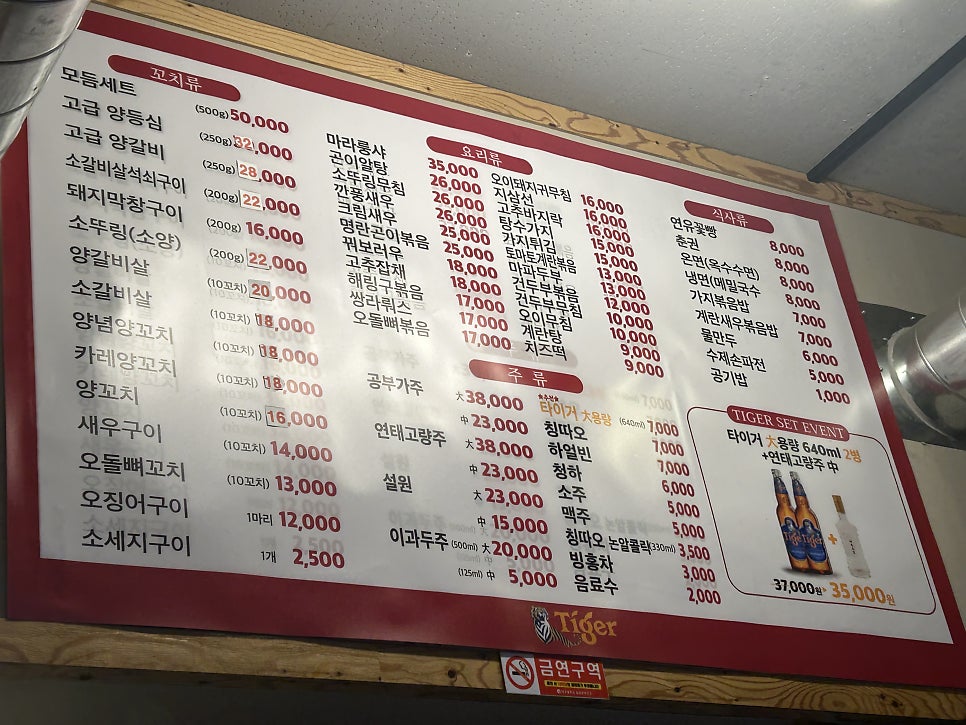 꼬치류
모듬세트 (500g) 50,000
고급 양등심 (250g) 32,000
고급 양갈비 (250g) 28,000
소갈비살석쇠구이 (200g) 22,000
돼지막창구이 (200g) 16,000
소뚜링(소양) (200g) 22,000
양갈비살 (10꼬치) 20,000
소갈비살 (10꼬치) 18,000
양념양꼬치 (10꼬치) 18,000
카레양꼬치 (10꼬치) 18,000
양꼬치 (10꼬치) 16,000
새우구이 (10꼬치) 14,000
오돌뼈꼬치 (10꼬치) 13,000
오징어구이 1마리 12,000
소세지구이 1개 2,500
요리류
마라룽샤 35,000
곤이알탕 26,000
소뚜링무침 26,000
깐풍새우 26,000
크림새우 25,000
명란곤이볶음 25,000
꿔보러우 18,000
고추잡채 18,000
해링구볶음 17,000
쌍라쿼스 17,000
오돌뼈볶음 17,000
오이돼지귀무침 16,000
지삼선 16,000
고추바지락 16,000
탕수가지 15,000
가지튀김 15,000
토마토계란볶음 13,000
마파두부 13,000
건두부볶음 12,000
건두부무침 10,000
오이무침 10,000
계란탕 9,000
치즈떡 9,000
주류
공부가주 大 38,000
中 23,000
연태고량주 大 38,000
中 23,000
설원 大 23,000
中 15,000
이과두주 (500ml) 大 20,000
(125ml) 中 5,000
타이거 大용량 (640ml) 7,000
칭따오 7,000
하얼빈 7,000
청하 6,000
소주 5,000
맥주 5,000
칭따오 논알콜락(330ml) 3,500
빙홍차 3,000
음료수 2,000
식사류
연유꽃빵 8,000
춘권 8,000
온면(옥수수면) 8,000
냉면(메밀국수 8,000
가지볶음밥 7,000
계란새우볶음밥 7,000
물만두 6,000
수제손파전 5,000
공기밥 1,000
TIGER SET EVENT
타이거 大용량 640ml 2병
+연태고량주 中
Tiger Tiger +
37,000원 35,000원
Tiger
금연구역